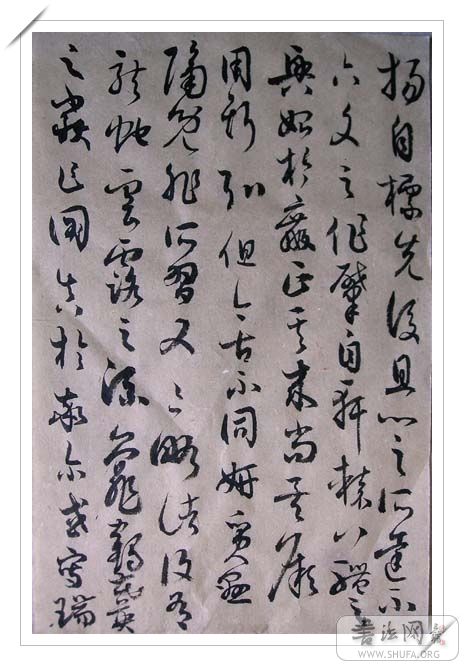 揚自標先後且心之所達不
六文之作肇自軒轅八體之
興始於嬴正其來尚矣厥
用斯弘但今古不同妍質懸
隔既非所習又亦略諸復有
龍蛇雲露之流龜鶴花英
之類乍圖真於率爾或寫瑞
书法网
WWW.SHUFA.ORG